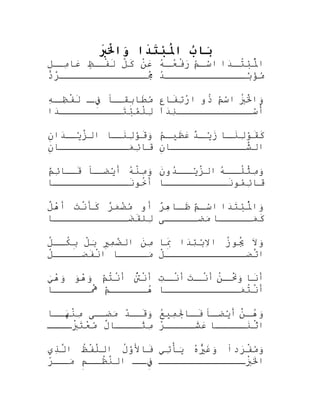 بَابُ الْمُبْتَدَا وَالْخَبَرْ
اَلْمُبْتَدَا اسْمٌ رَفْعُهُ عَنْ كُلِّ لَفْظٍ عَامِلٍ
مُؤَبَّدُ مُجَرَّدُ
وَالْخَبَرُ اسْمٌ ذُو ارْتِفَاعٍ مُطَابِقاً فِي لَفْظِهِ
أُسْنِدَا لِلْمُبْتَدَا
كَقَوْلِنَا زَيْدٌ عَظِيمُ وَقَوْلِنَا الزَّيْدَانِ
الشَّانِ قَائِمَانِ
وَمِثْلُهُ الزَّيْدُونَ وَمِنْهُ أَيْضاً قَائِمٌ
قَائِمُونَا أَخُونَا
وَالْمُبْتَدَا اسْمٌ ظَاهِرٌ أَو مُضْمَرُ كَأَنْتَ أَهْلٌ
كَمَا مَضَى لِلقَضَا
وَلَا يَجُوزُ الابْتِدَا بِمَا مِنَ الضَّمِيرِ بَلْ بِكُلِّ
اتَّصَلْ مَا انْفَصَلْ
أَنَا وَنَحْنُ أَنْتَ أَنْتِ أَنْتُنَّ أَنْتُمْ وَهُوَ وَهْيَ
أَنْتُمَا هُمْ هُمَا
وَهُنَّ أَيْضاً فَالجَمِيعُ وَقَدْ مَضَى مِنْهَا
اثْنَا عَشَرْ مِثَالٌ مُعْتَبَرْ
وَمُفْرَداً وَغَيْرَهُ يَأْتِي فَالأَوَّلُ اللَّفْظُ الَّذِي
الخَبَرْ فِي النَّظْمِ مَرْ